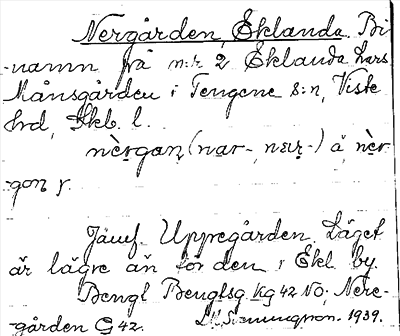 Nergården, Eklanda. Bi-
namn på n:r 2 Eklanda Lars
Månsgården i Tengene s:n, Viste
hrd, Skb. l.
nèrgaṇ (nar-, nær-) å, nèr-
gon y.
Jämf. Uppegården. Läget
är lägre än för den i Ekl. by.
Bengt Bengtsg. Kg 42 No; Nere-
gården G 42.
1939.